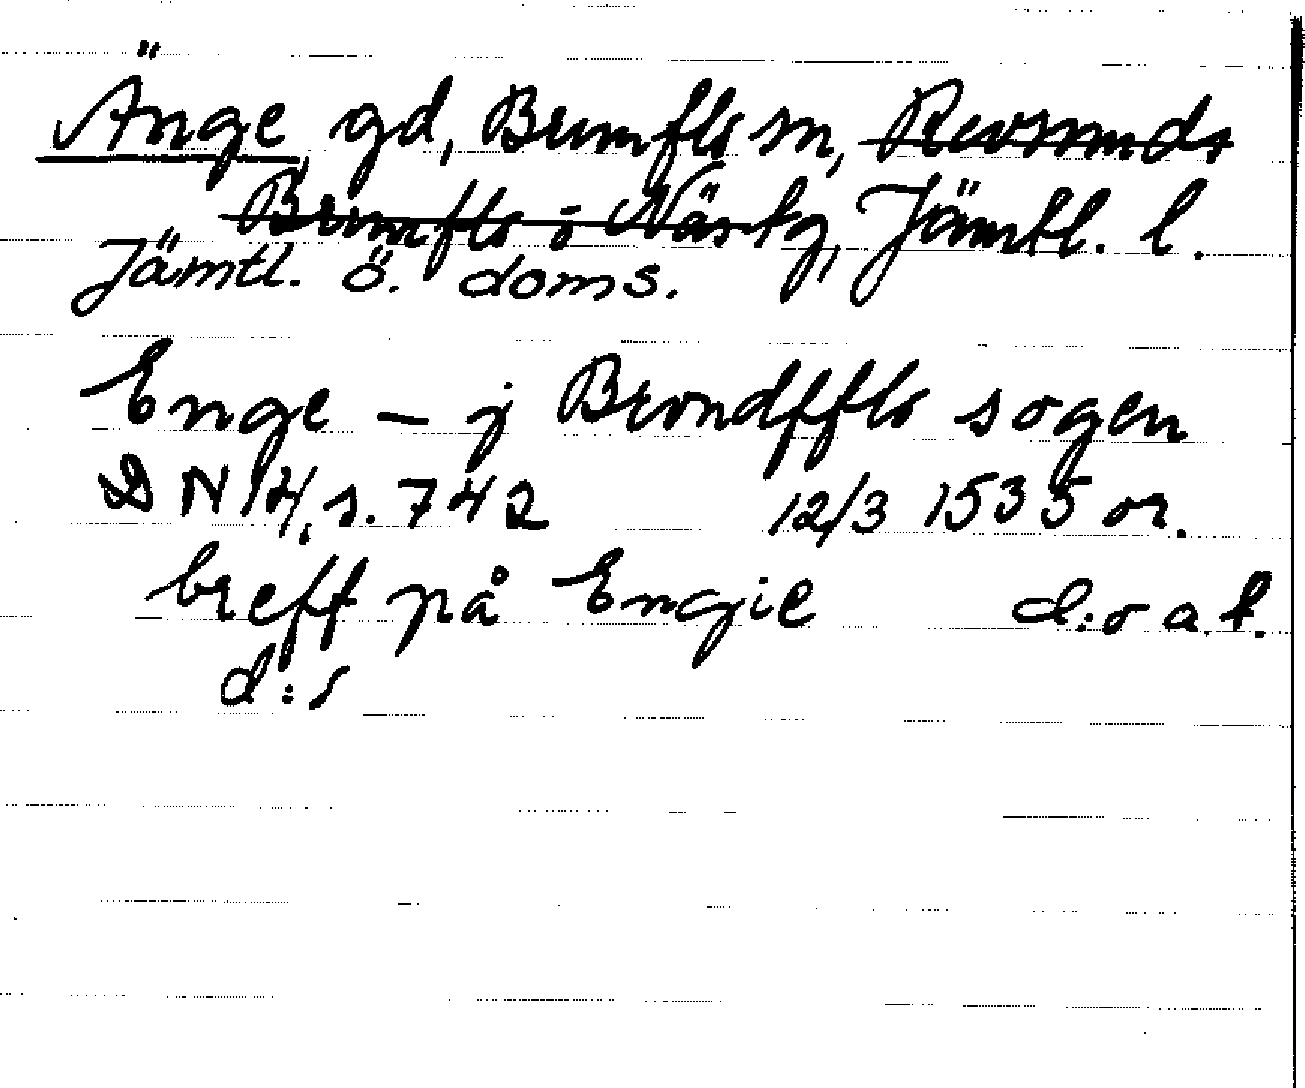 Änge, gd, Brunflo sn, Revsunds
Brunflo o Näs tg, Jämtl. l.
Jämtl. ö. doms.
Enge – j Brondfflo sogen
DN 14, s. 742 12/3 1535 or.
breff på Engie d:o a. l.
d:s